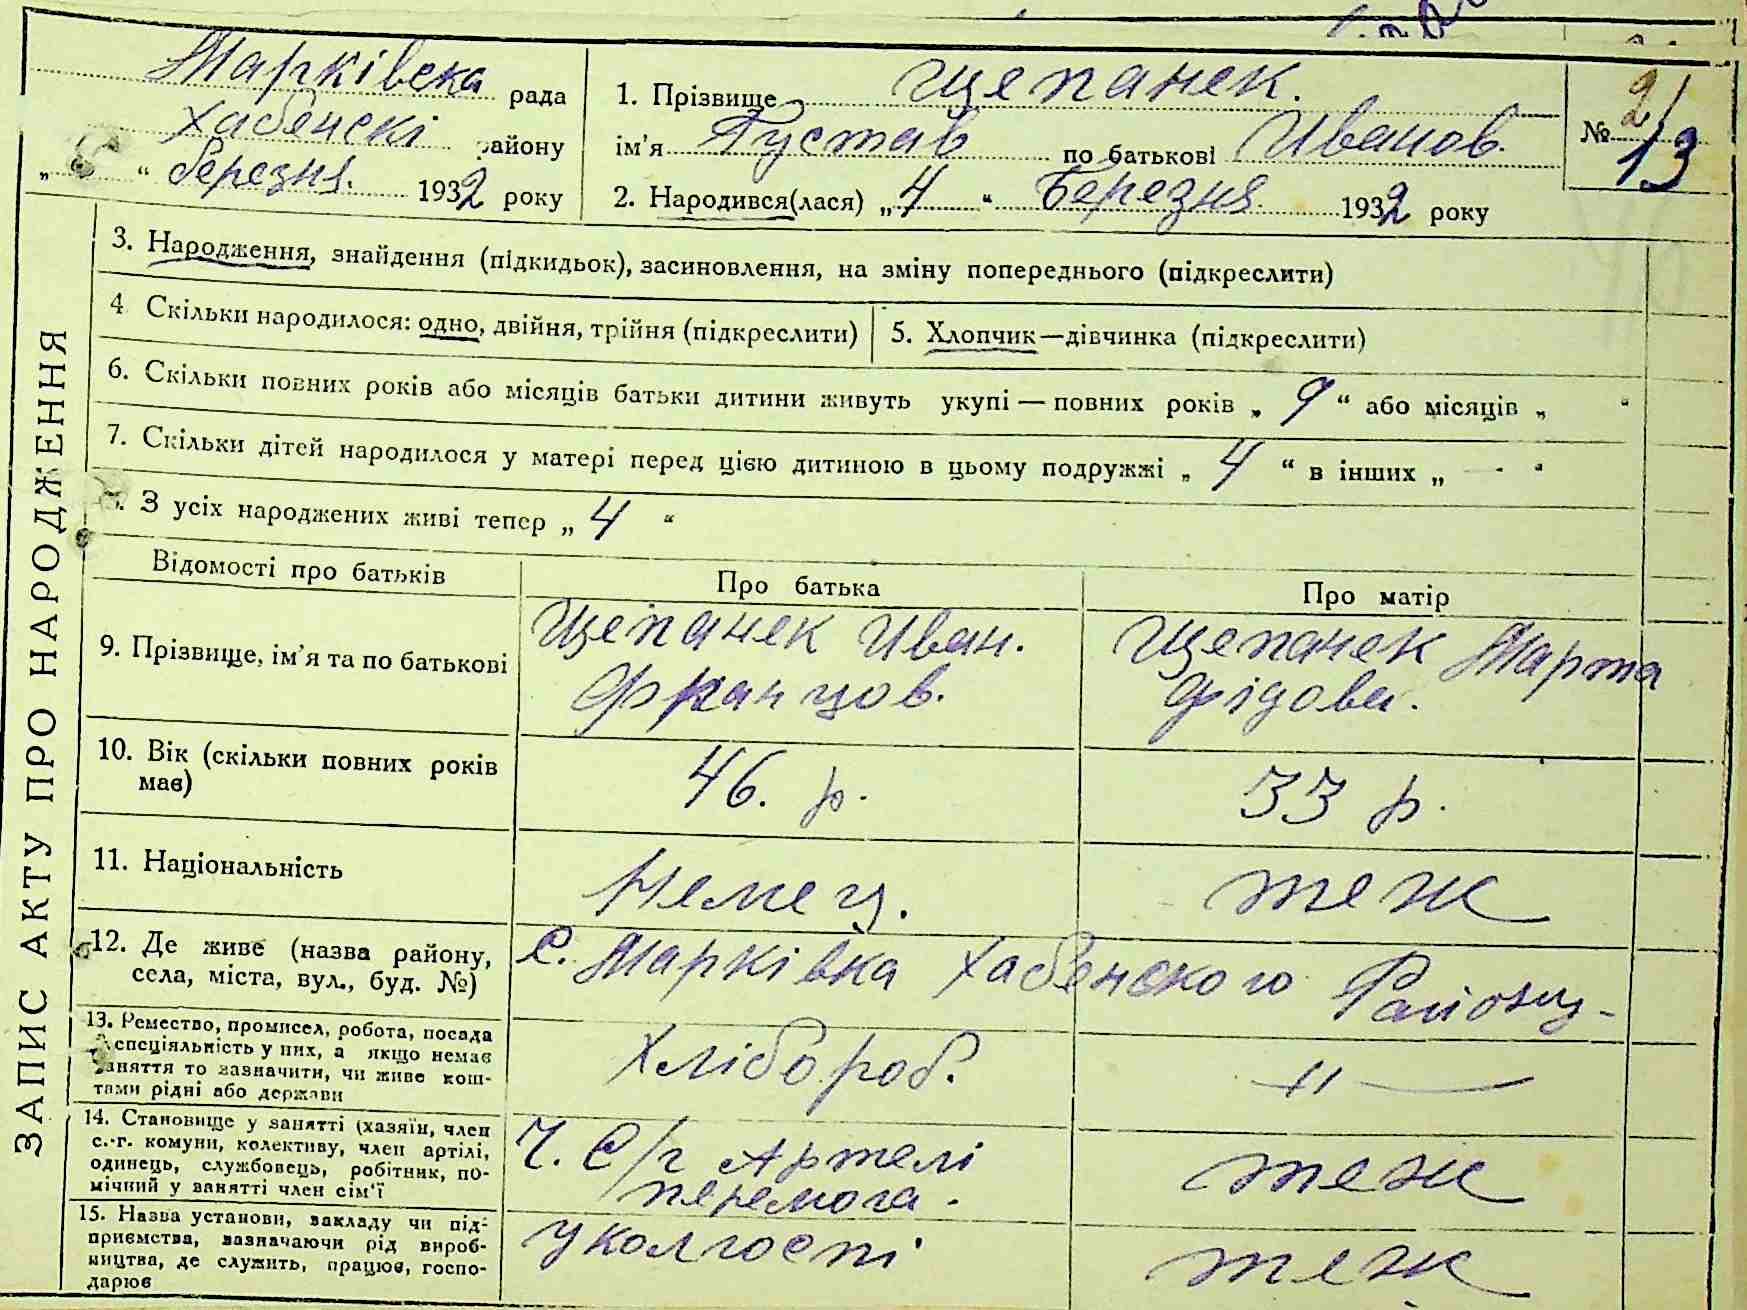 ЗАПИС АКТУ ПРО НАРОДЖЕННЯ
Марківска рада
Хабенскі району
„ “ березня. 1932 року
1. Прізвище Щепанек.
ім’я Густав по батькові Иванов.
2. Народився(лася) „4“ Березня 1932 року
№ 13
21
3. Народження, знайдення (підкидьок), засиновлення, на зміну попереднього (підкреслити)
4. Скільки народилося: одно, двійня, трійня (підкреслити)
5. Хлопчик—дівчинка (підкреслити)
6. Скільки повних років або місяців батьки дитини живуть укупі — повних років „ 9 “ або місяців „ “
7. Скільки дітей народилося у матері перед цією дитиною в цьому подружжі „ 4 “ в інших „ — “
8. З усіх народжених живі тепер „ 4 “
Відомості про батьків
Про батька
Про матір
9. Прізвище, ім’я та по батькові
Щепанек Иван.
Францов.
Щепанек Марта
Фідова.
10. Вік (скільки повних років
має)
46. р.
33 р.
11. Національність
Немец.
теж
12. Де живе (назва району,
села, міста, вул., буд. №)
С. Марківка Хабенского Району-
13. Ремество, промисел, робота, посада
й спеціяльність у них, а якщо немає
заняття то зазначити, чи живе кош-
тами рідні або держави
Хлібороб.
—〃—
14. Становище у занятті (хазяїн, член
с.-г. комуни, колективу, член артілі,
одинець, службовець, робітник, по-
мічний у занятті член сім’ї
Ч. С/г Артелі
перемога.
теж
15. Назва установи, закладу чи під-
приємства, зазначаючи рід вироб-
ництва, де служить, працює, госпо-
дарює
у колгоспі
теж